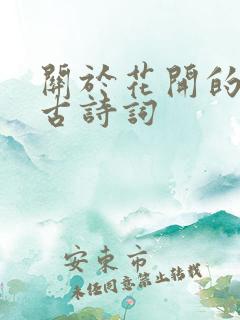 關於花開的
古詩詞
安東市
未經同意禁止轉載